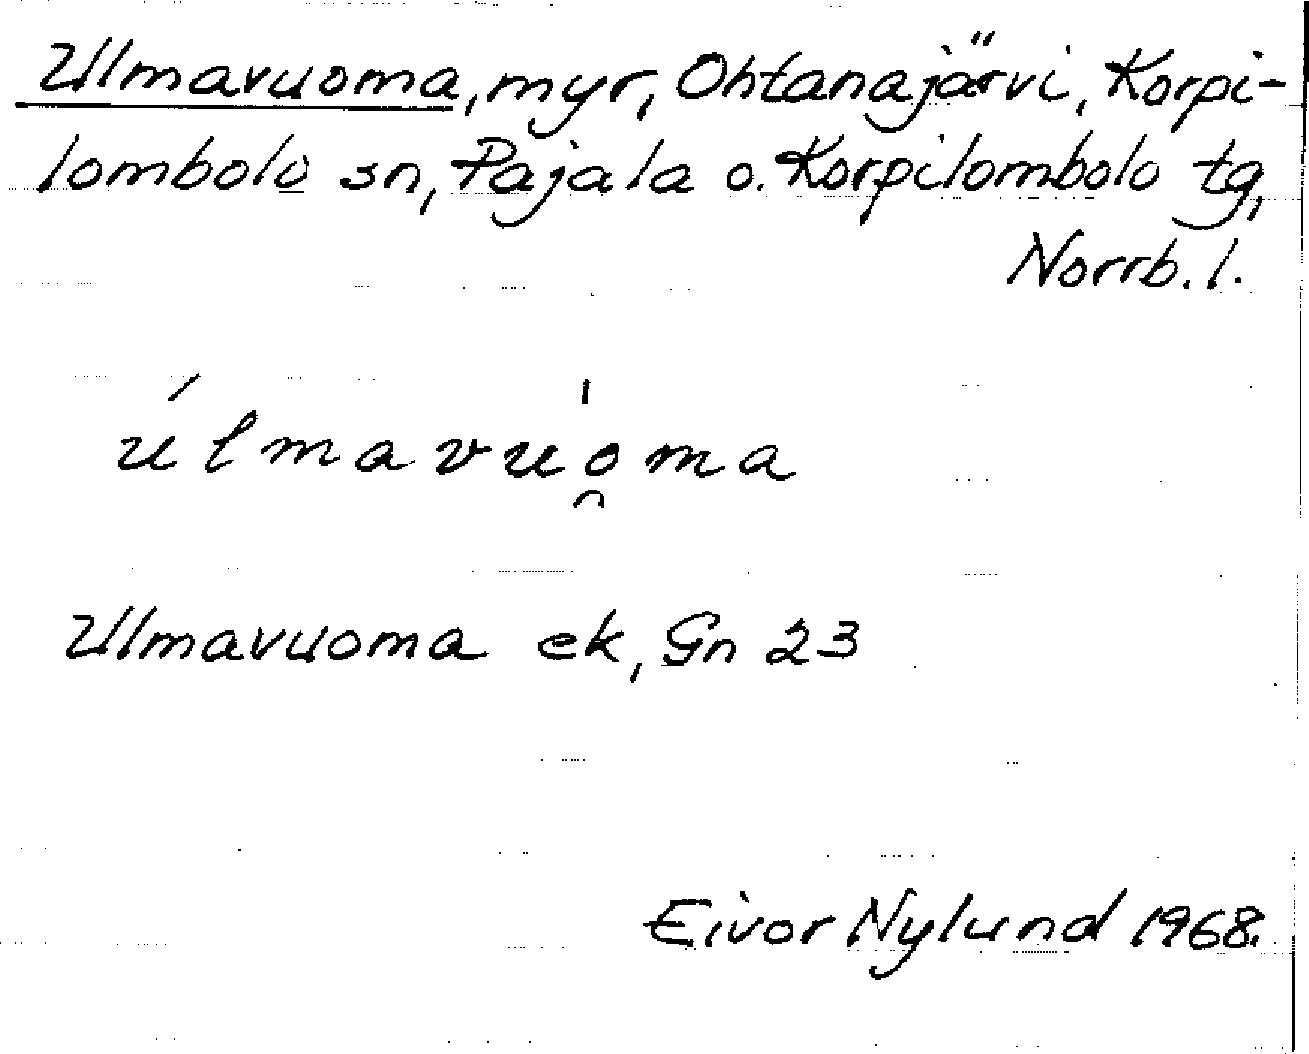 Ulmavuoma, myr, Ohtanajärvi, Korpi-
lombolo sn, Pajala o. Korpilombolo tg,
Norrb. l.
úlmavuo̯ma
Ulmavuoma ek, Gn 23
Eivor Nylund 1968.